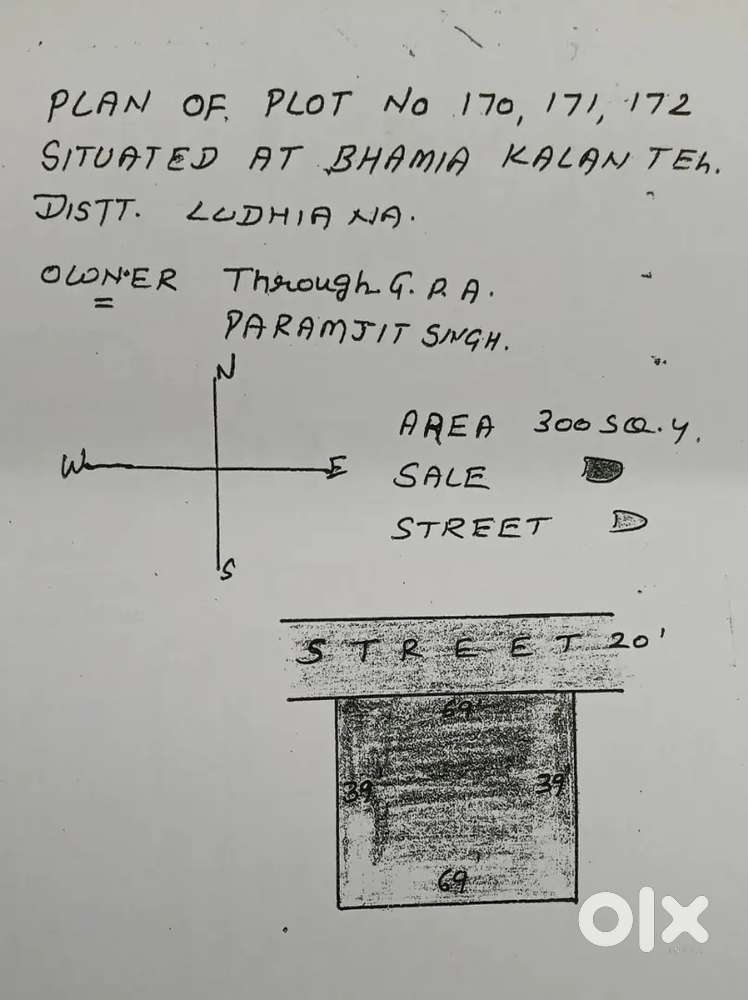 PLAN OF PLOT NO 170, 171, 172
SITUATED AT BHAMIA KALAN TEh.
DISTT. LUDHIANA.
OWNER Through G.P.A.
PARAMJIT SINGH.
N
W E
S
AREA 300 SQ.Y.
SALE
STREET
STREET 20'
69'
39' 39'
69'
olx